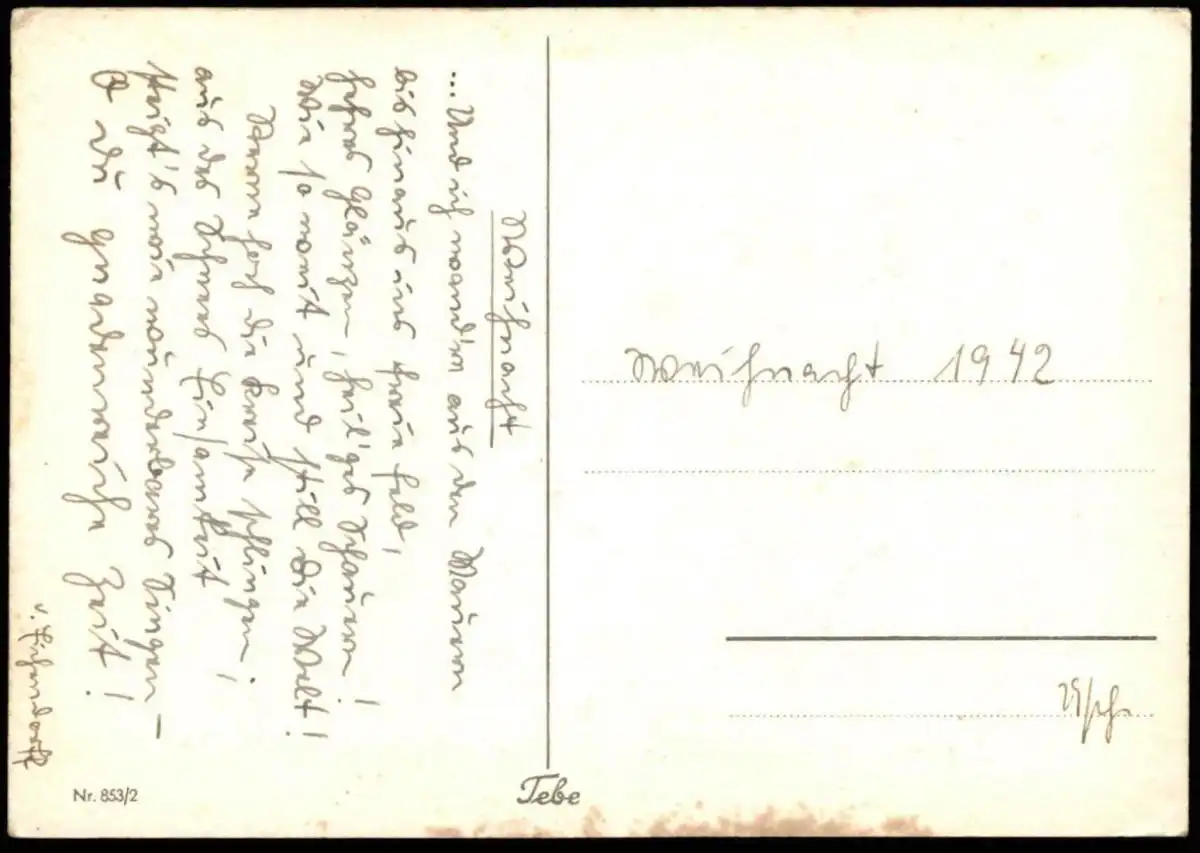 Weihnacht
... Und ich wand're aus den Mauern
bis hinaus ins freie Feld,
hehres Glänzen, heil'ges Schauern!
Wie so weit und still die Welt!
Sterne hoch die Kreise schlingen;
aus des Schnees Einsamkeit
steigt's wie wunderbares Singen –
O du gnadenreiche Zeit!
v. Eichendorff
Nr. 853/2
Tebe
Weihnacht 1942